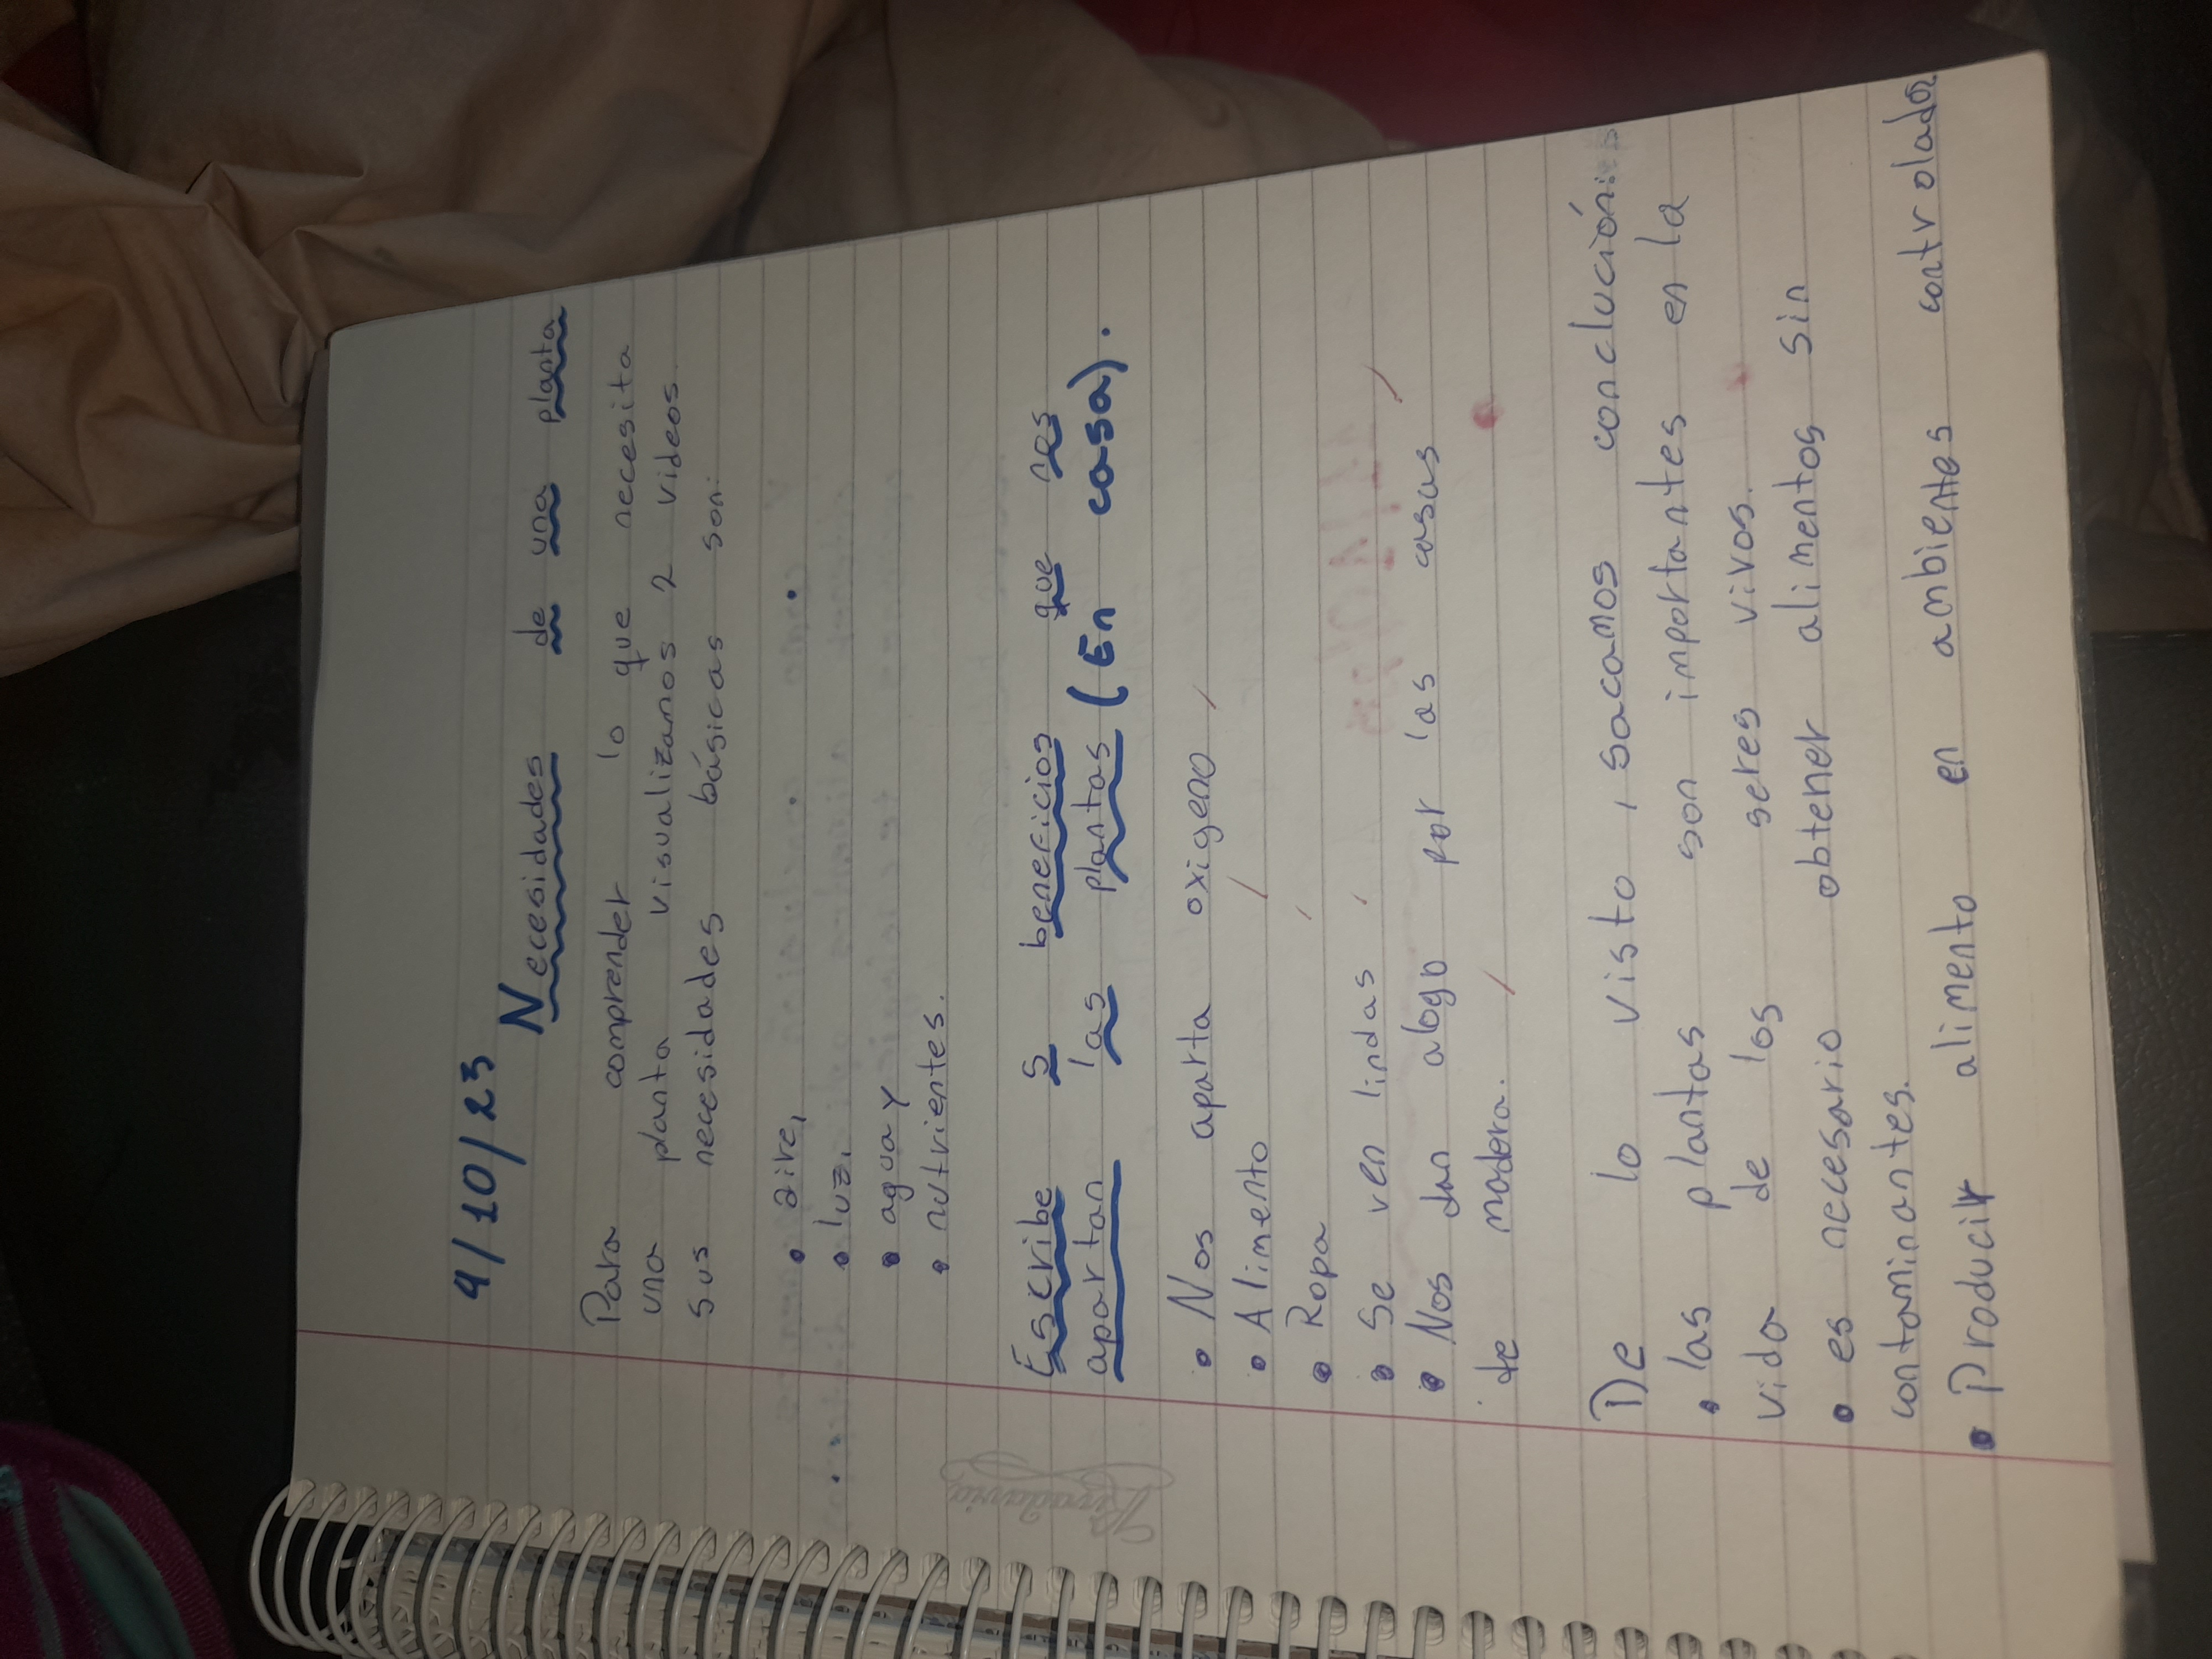 4/10/23
Necesidades de una planta
Para comprender lo que necesita
una planta visualizamos 2 videos.
sus necesidades básicas son:
• aire,
• luz,
• agua y
• nutrientes.
Escribe 5 beneficios que nos
aportan las plantas (En casa).
• Nos aparta oxigeno
• Alimento
• Ropa
• Se ven lindas
• Nos dan alogo por las casas
de madera.
De lo visto, sacamos conclución:
• las plantas son importantes en la
vida de los seres vivos.
• es necesario obtener alimentos sin
contaminantes.
• Producir alimento en ambientes controlados
Rivadavia